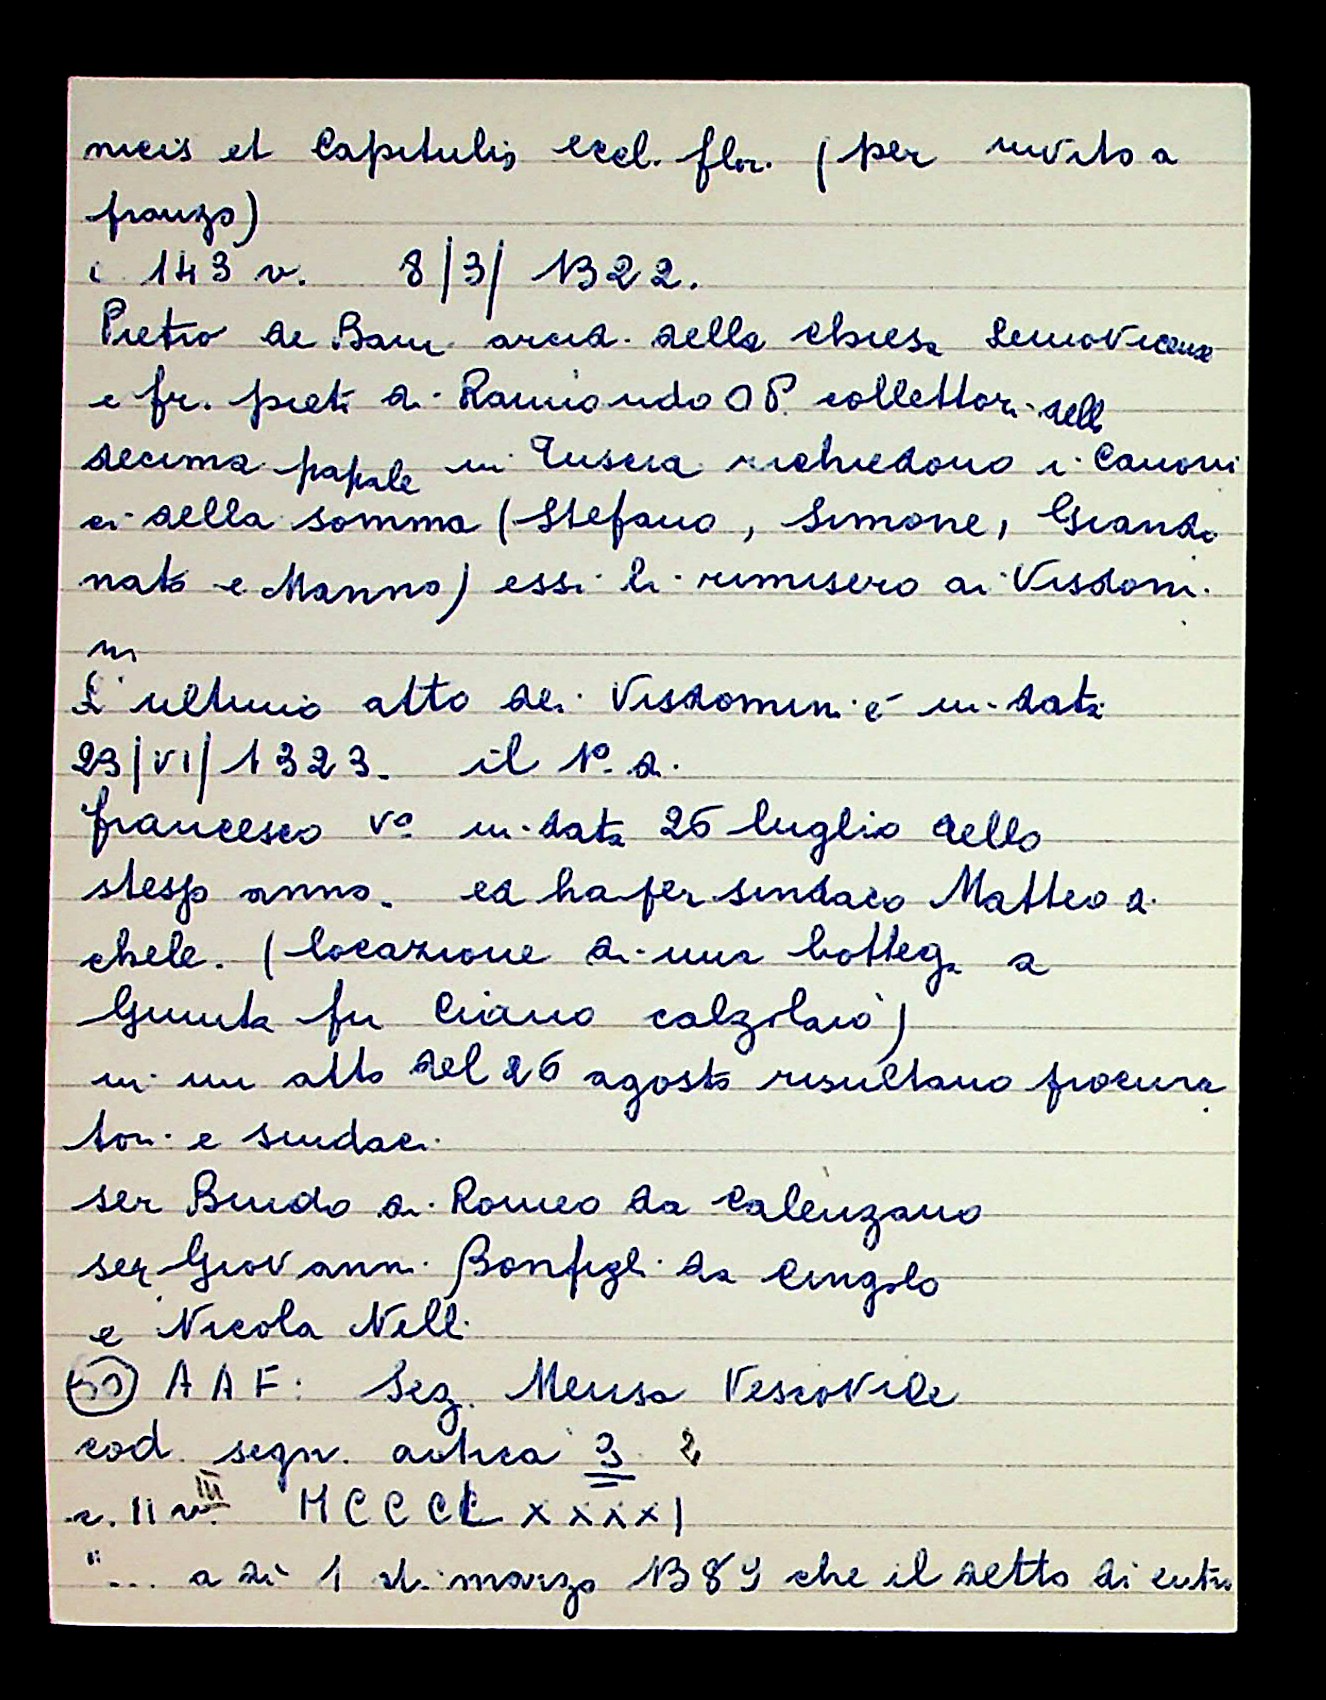 nicis et Capitulis eccl. flor. (per invito a
pranzo)
c 143 v. 8/3/1322.
Pietro de Bam arcid. della chiesa Lemovicense
e fr. pietr di Raimondo OP. collettori della
decima papale in Tuscia richiedono i Canoni
ci della somma (Stefano, Simone, Giando
nato e Manno) essi li rimisero ai Visdomi.
ni
L'ultimo atto dei Visdomini è in data
23/VI/1323. il 1º. d.
francesco Vº in data 26 luglio dello
stesso anno. ed ha per sindaco Matteo d.
chele. (locazione di una bottega a
Giunta fu Ciano calzolaio)
in un atto del 26 agosto risultano procura
tori e sindaci
ser Bindo di Romeo da Calenzano
ser Giovanni Bonfigli da Cingolo
e Nicola Nelli
50 AAF: Sez. Mensa Vescovile
cod. segn. antica 3 2
c. II v. III MCCCLXXXXI
"... a dì 1 di marzo 1389 che il detto di entro